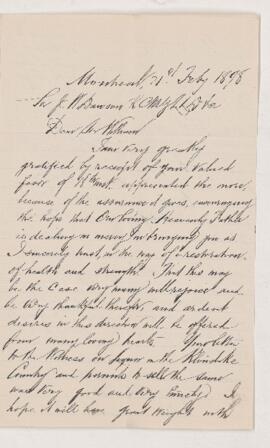 Montreal, 21st Feby 1898
Sir J. W. Dawson K.C.M.G. &c
Dear Sir William
I am very greatly
gratified by receipt of your valued
favor of inst, appreciated the more,
because of the assurance it gives, encouraging
the hope that Our loving Heavenly Father
is dealing in mercy in bringing you as
I sincerely trust, in the way of restoration
of health and strength That this may
be the case very many will rejoice and
be very thankful therefor, and ardent
desires in this direction will be offered
from many loving hearts Your letter
to the Witness on liquor in the Klondike
Country and permits to sell the same
was very good and very timely I
hope it will have great weight with